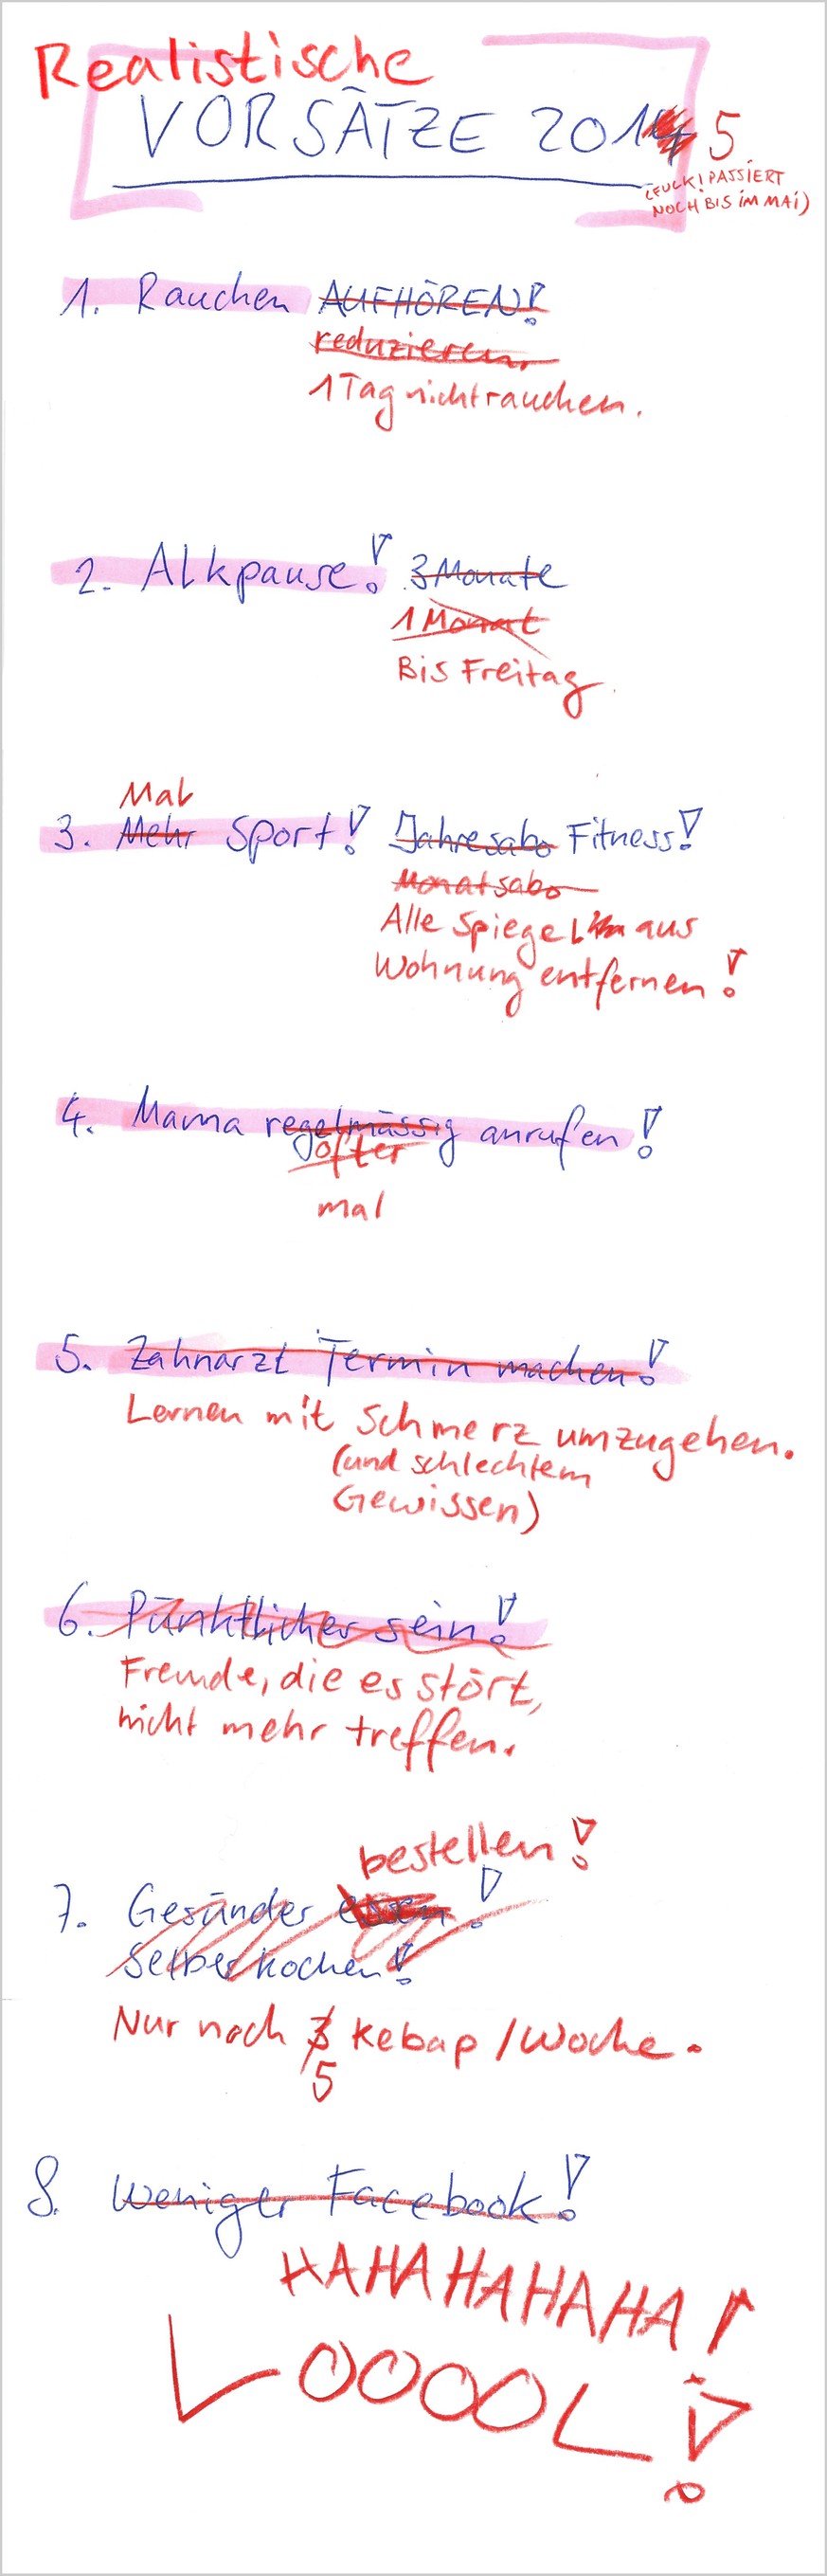 Realistische
VORSÄTZE 2014 5
(FUCK! PASSIERT
NOCH BIS IM MAI)
1. Rauchen AUFHÖREN!
reduzieren.
1 Tag nicht rauchen.
2. Alkpause! 3 Monate
1 Monat
Bis Freitag
Mal
3. Mehr Sport! Jahresabo Fitness!
Monatsabo
Alle Spiegel aus
Wohnung entfernen!
4. Mama regelmässig anrufen!
öfter
mal
5. Zahnarzt Termin machen!
Lernen mit Schmerz umzugehen.
(und schlechtem
Gewissen)
6. Pünktlicher sein!
Freunde, die es stört,
nicht mehr treffen.
bestellen!
7. Gesünder essen!
Selber kochen!
Nur noch 3 Kebap / Woche.
5
8. Weniger Facebook!
HAHAHAHAHA!
LOOOOL!